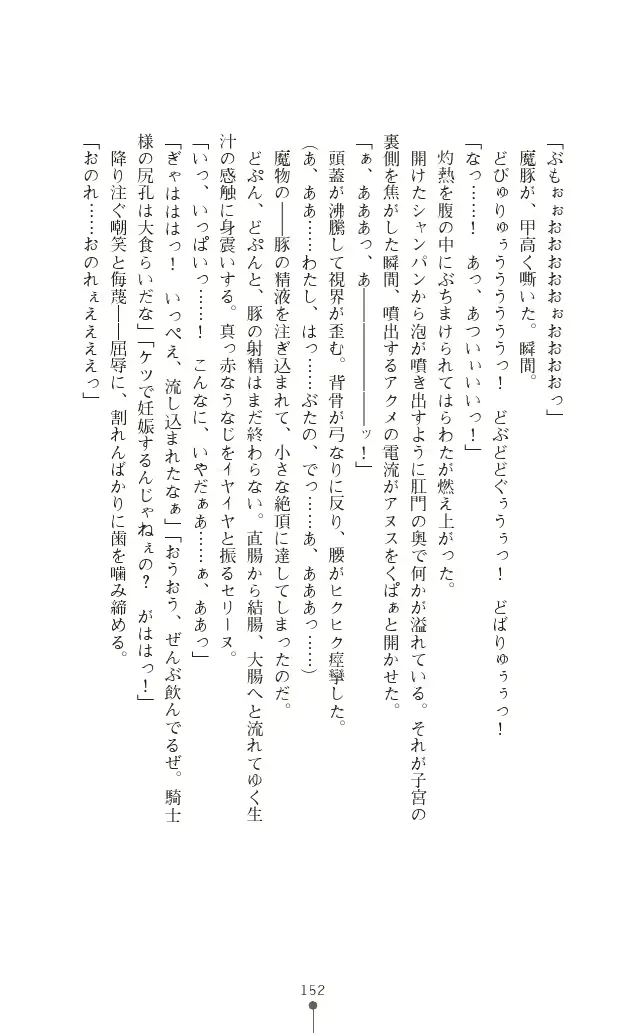 「ぶもぉぉおおおおおぉおおおおっ」
魔豚が、甲高く嘶いた。瞬間。
どびゅりゅぅうううううっ！　どぶどどぐぅうぅっ！　どばりゅぅぅっ！
「なっ……！　あっ、あついぃぃいっ！」
灼熱を腹の中にぶちまけられてはらわたが燃え上がった。
開けたシャンパンから泡が噴き出すように肛門の奥で何かが溢れている。それが子宮の
裏側を焦がした瞬間、噴出するアクメの電流がアヌスをくぱぁと開かせた。
「ぁ、あああっ、あ―――――ッ！」
頭蓋が沸騰して視界が歪む。背骨が弓なりに反り、腰がヒクヒク痙攣した。
（あ、ああ……わたし、はっ……ぶたの、でっ……あ、あああっ……）
魔物の――豚の精液を注ぎ込まれて、小さな絶頂に達してしまったのだ。
どぷん、どぷんと、豚の射精はまだ終わらない。直腸から結腸、大腸へと流れてゆく生
汁の感触に身震いする。真っ赤なうなじをイヤイヤと振るセリーヌ。
「いっ、いっぱいっ……！　こんなに、いやだぁあ……ぁ、ああっ」
「ぎゃはははっ！　いっぺえ、流し込まれたなぁ」「おうおう、ぜんぶ飲んでるぜ。騎士
様の尻孔は大食らいだな」「ケツで妊娠するんじゃねぇの？　がははっ！」
降り注ぐ嘲笑と侮蔑――屈辱に、割れんばかりに歯を噛み締める。
「おのれ……おのれぇええええっ」
152